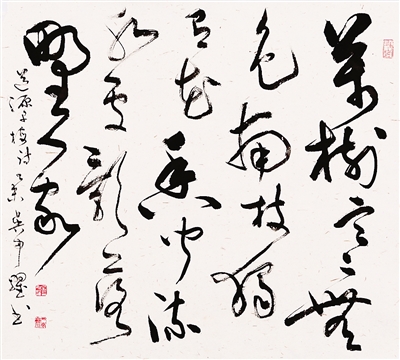 萬樹寒無
色南枝獨
有花香聞流
水處影落
野人家
道源早梅詩 書